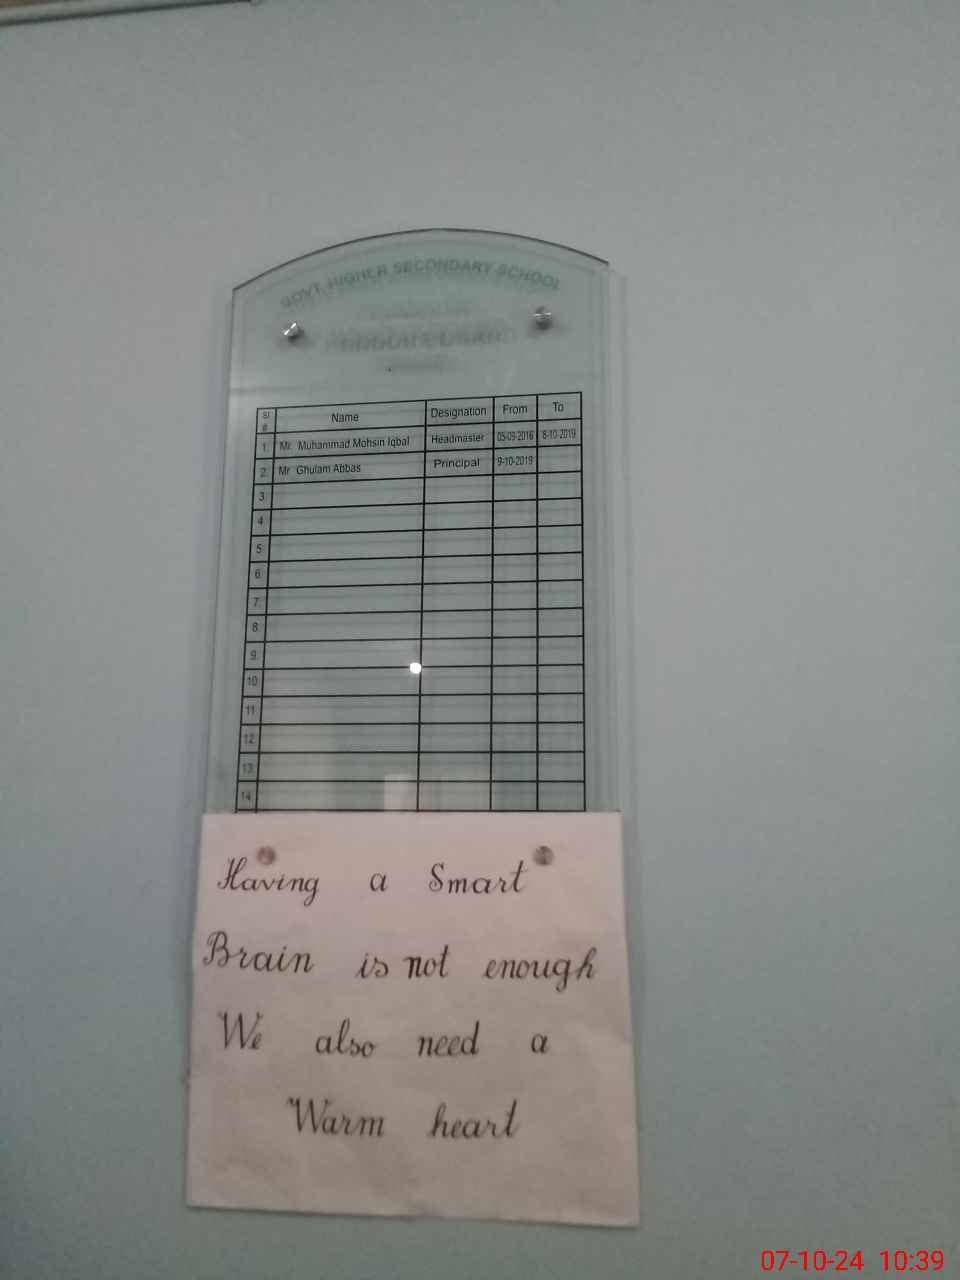 GOVT. HIGHER SECONDARY SCHOOL
Sr # Name Designation From To
1. Mr. Muhammad Mohsin Iqbal Headmaster 05-09-2016 8-10-2019
2. Mr Ghulam Abbas Principal 9-10-2019
3
4
5.
6.
7.
8
9.
10
11
12
13
14
Having a Smart
Brain is not enough
We also need a
Warm heart
07-10-24 10:39